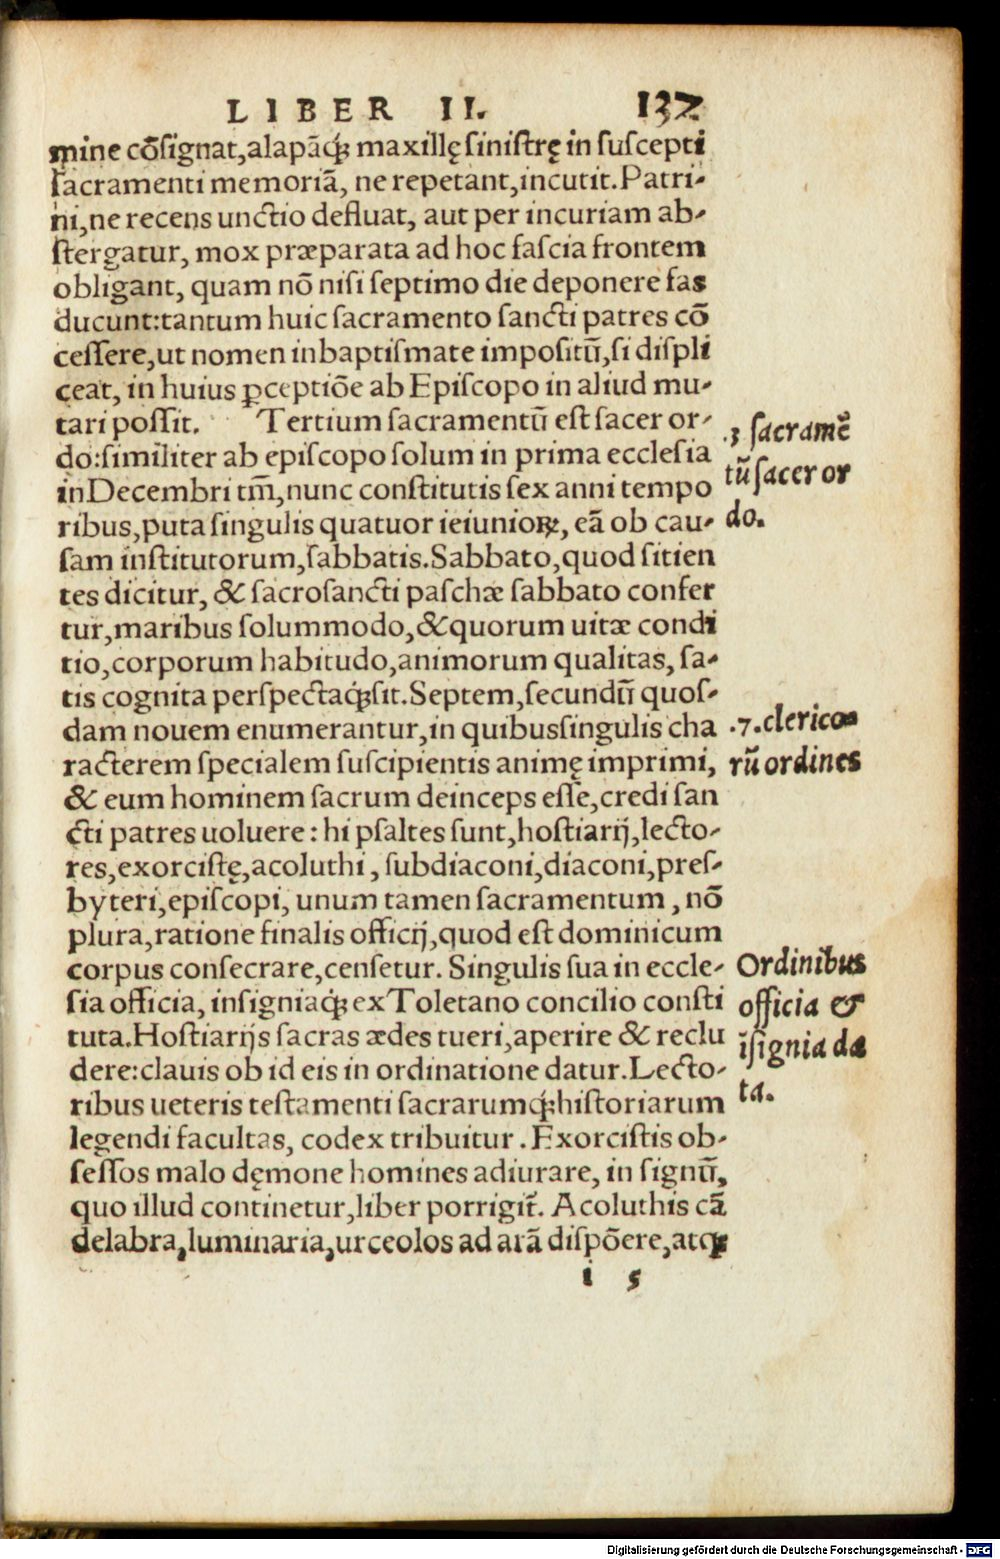 LIBER II. 137
mine cõsignat,alapãq́ꝫ maxillę sinistrę in suscepti
sacramenti memoriã, ne repetant,incutit.Patri-
ni,ne recens unctio defluat, aut per incuriam ab-
stergatur, mox præparata ad hoc fascia frontem
obligant, quam nõ nisi septimo die deponere fas
ducunt:tantum huic sacramento sancti patres cõ
cessere,ut nomen in baptismate impositũ,si displi
ceat, in huius ꝑceptiõe ab Episcopo in aliud mu-
tari possit. Tertium sacramentũ est sacer or-
do:similiter ab episcopo solum in prima ecclesia
in Decembri tm̃,nunc constitutis sex anni tempo
ribus,puta singulis quatuor ieiunioꝝ, eã ob cau-
sam institutorum,sabbatis.Sabbato,quod sitien
tes dicitur, & sacrosancti paschæ sabbato confer
tur,maribus solummodo,&quorum uitæ condi
tio,corporum habitudo,animorum qualitas, sa-
tis cognita perspectaq́ꝫ sit.Septem,secundũ quos-
dam nouem enumerantur,in quibus singulis cha
racterem specialem suscipientis animę imprimi,
& eum hominem sacrum deinceps esse,credi san
cti patres uoluere: hi psaltes sunt,hostiarij,lecto-
res,exorcistę,acoluthi, subdiaconi,diaconi,pres-
byteri,episcopi, unum tamen sacramentum, nõ
plura,ratione finalis officij,quod est dominicum
corpus consecrare,censetur. Singulis sua in eccle-
sia officia, insigniaq́ꝫ ex Toletano concilio consti
tuta.Hostiarijs sacras ædes tueri,aperire & reclu
dere:clauis ob id eis in ordinatione datur.Lecto-
ribus ueteris testamenti sacrarumq́ꝫ historiarum
legendi facultas, codex tribuitur. Exorcistis ob-
sessos malo dęmone homines adiurare, in signũ,
quo illud continetur,liber porrigit̃. Acoluthis cã
delabra,luminaria,urceolos ad arã dispõere,atqꝫ
i 5
.3 sacramẽ
tũ sacer or
do.
.7.clerico
rũ ordines
Ordinibus
officia &
ĩsignia da
ta.
Digitalisierung gefördert durch die Deutsche Forschungsgemeinschaft - DFG